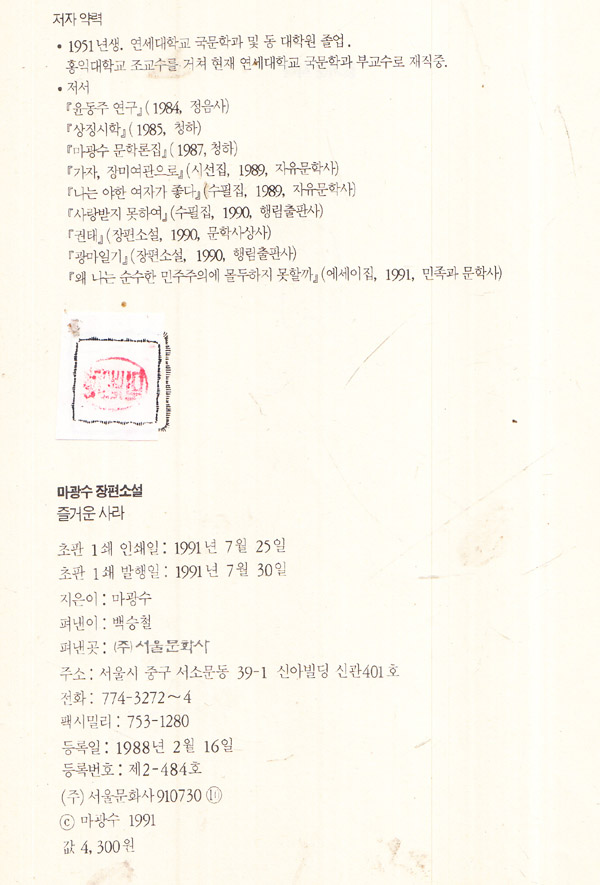 저자 약력
• 1951년생. 연세대학교 국문학과 및 동 대학원 졸업.
홍익대학교 조교수를 거쳐 현재 연세대학교 국문학과 부교수로 재직중.
• 저서
『윤동주 연구』(1984, 정음사)
『상징시학』(1985, 청하)
『마광수 문학론집』(1987, 청하)
『가자, 장미여관으로』(시선집, 1989, 자유문학사)
『나는 야한 여자가 좋다』(수필집, 1989, 자유문학사)
『사랑받지 못하여』(수필집, 1990, 행림출판사)
『권태』(장편소설, 1990, 문학사상사)
『광마일기』(장편소설, 1990, 행림출판사)
『왜 나는 순수한 민주주의에 몰두하지 못할까』(에세이집, 1991, 민족과 문학사)
마광수 장편소설
즐거운 사라
초판 1쇄 인쇄일: 1991년 7월 25일
초판 1쇄 발행일: 1991년 7월 30일
지은이: 마광수
펴낸이: 백승철
펴낸곳: (주)서울문화사
주소: 서울시 중구 서소문동 39-1 신아빌딩 신관401호
전화: 774-3272~4
팩시밀리: 753-1280
등록일: 1988년 2월 16일
등록번호: 제2-484호
(주)서울문화사910730 ⑩
ⓒ 마광수 1991
값 4,300원